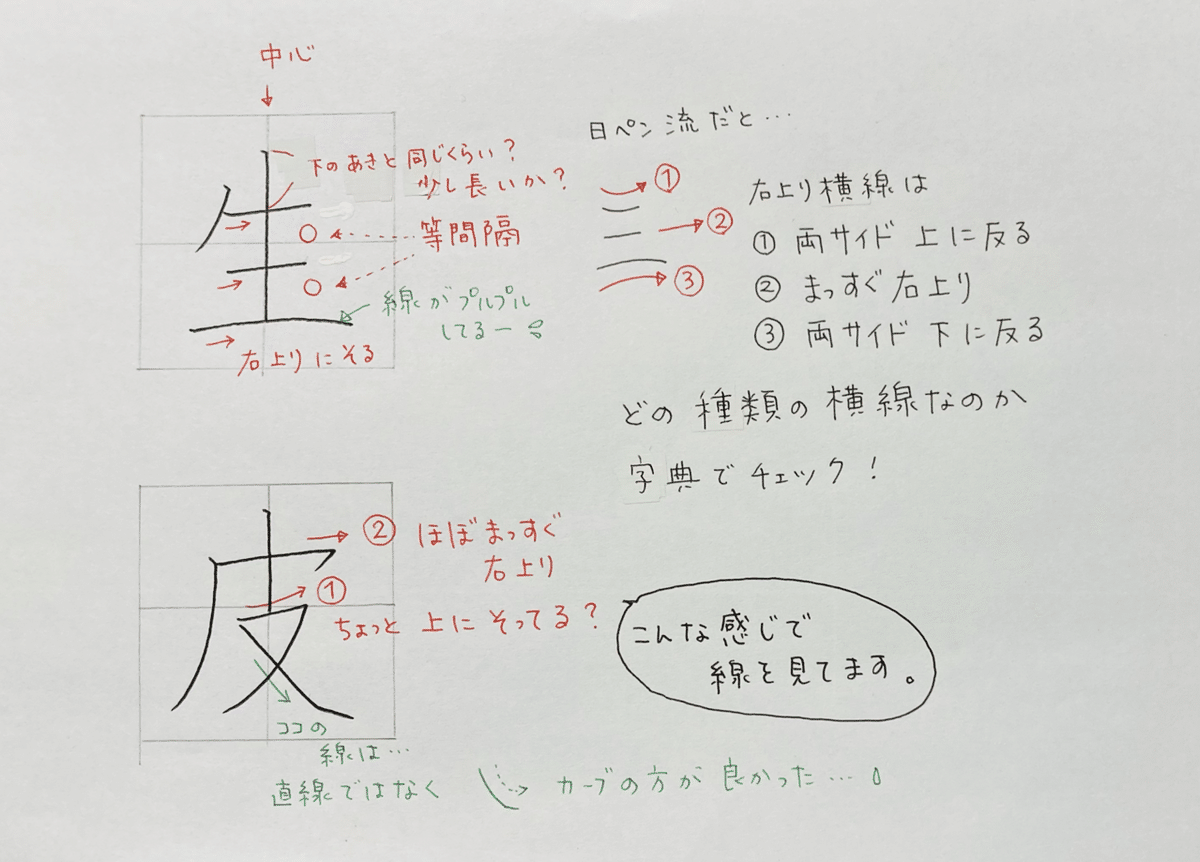 中心
↓
生
下のあきと同じくらい?
少し長いか?
等間隔
線がプルプル
してるー
右上りにそる
日ペン流だと…
①
②
③
右上り横線は
① 両サイド上に反る
② まっすぐ右上り
③ 両サイド下に反る
どの種類の横線なのか
字典でチェック!
皮
② ほぼまっすぐ
右上り
①
ちょっと上にそってる?
ココの
線は…
直線ではなく
カーブの方が良かった…
こんな感じで
線を見てます。